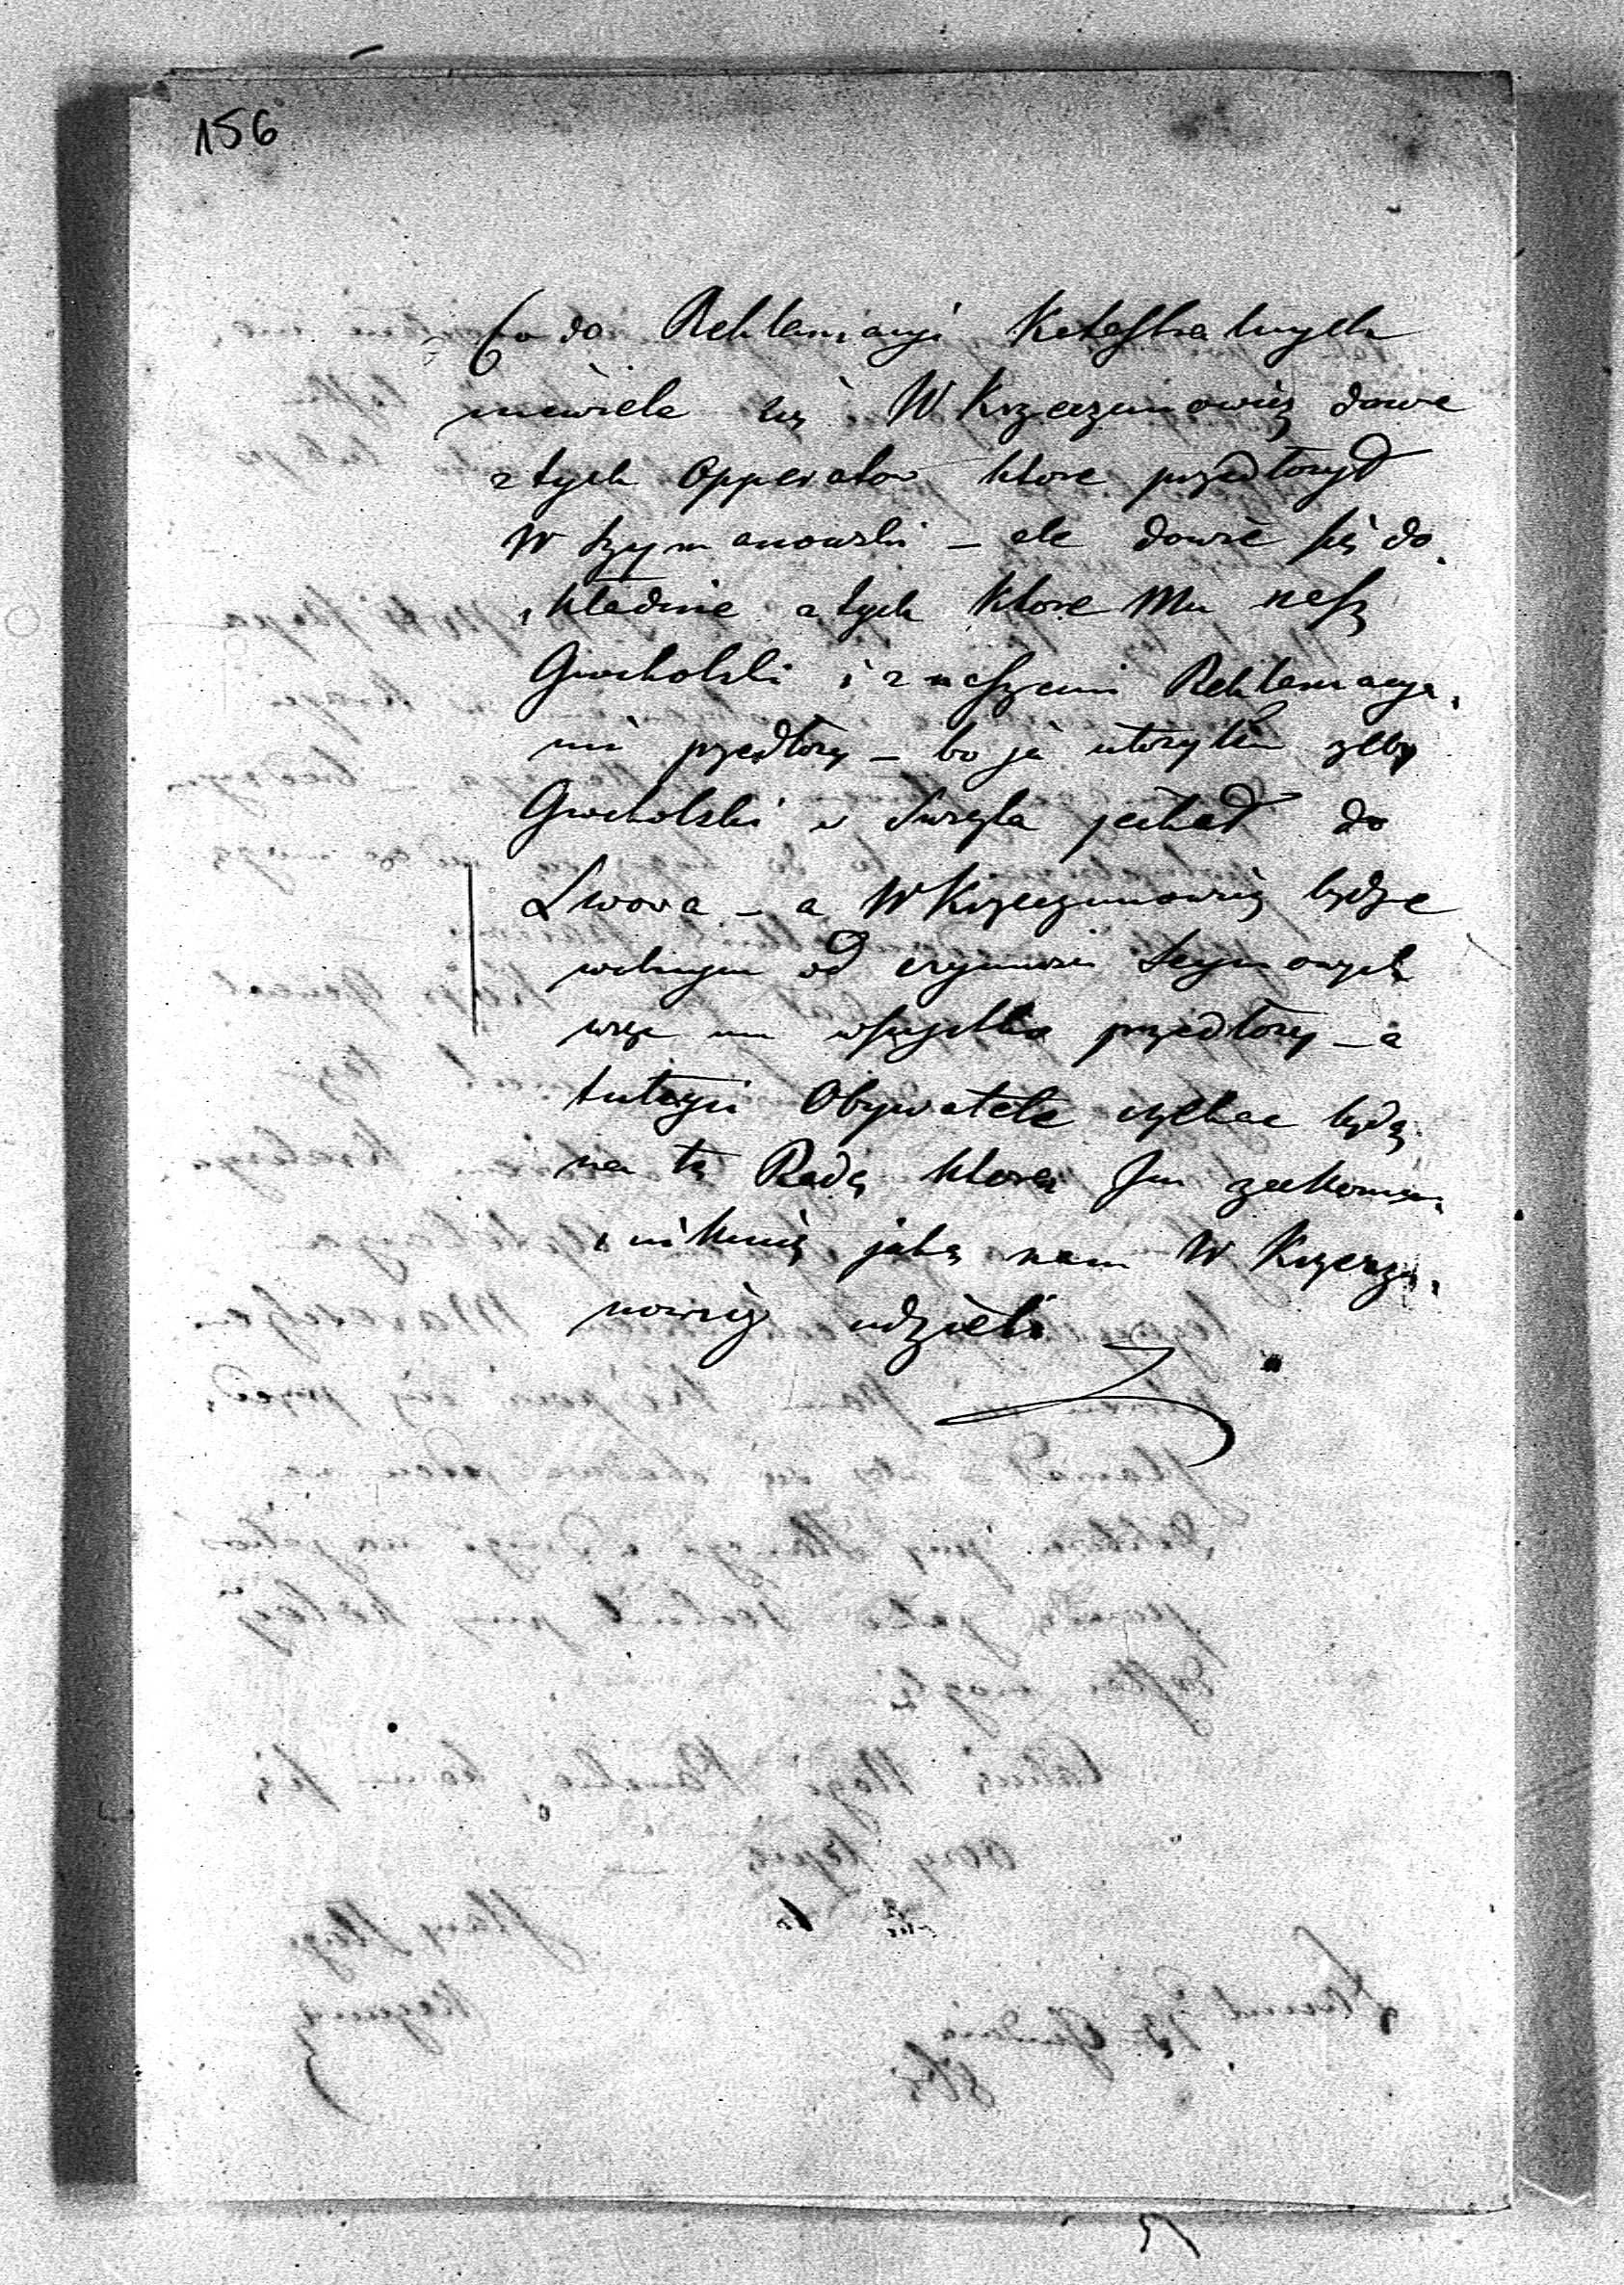 156
Co do Reklamacyi Katastralnych
niewiele się W Krzeczunowicz dowie
z tych Opperatow ktore przedłozył
W Szymanowski – ale dowie się do
kładnie z tych ktore Mu nasz
Grocholski i z naszemi Reklamacya
mi przedłozy – bo ja utozyłem zeby
Grocholski w Swięta jechał do
Lwowa – a W Krzeczunowicz będzie
wolnym od czynnosci Seymowych
więc mu wszystko przedłozy – a
tutejsi Obywatele czekac będą
na tę Radę ktorą Im zakomu
nikuię jaką nam W Krzeczu
nowicz udzieli